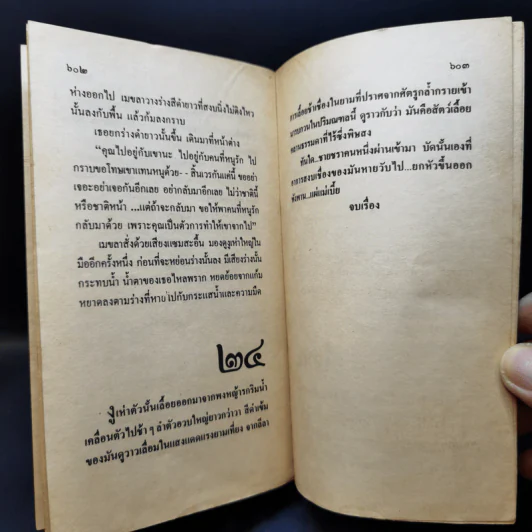 ๖๐๒
ห่างออกไป เมขลาวางร่างสีดำยาวที่สงบนิ่งไม่ติงไหว
นั้นลงกับพื้น แล้วก้มลงกราบ
เธอยกร่างดำยาวนั้นขึ้น เดินมาที่หน้าต่าง
“คุณไปอยู่กับเขานะ ไปอยู่กับคนที่หนูรัก ไป
กราบขอโทษเขาแทนหนูด้วย-- สิ้นเวรกันแค่นี้ ขออย่า
เจอะอย่าเจอกันอีกเลย อย่ากลับมาอีกเลย ไม่ว่าชาตินี้
หรือชาติหน้า ...แต่ถ้าจะกลับมา ขอให้พาคนที่หนูรัก
กลับมาด้วย เพราะคุณเป็นตัวการทำให้เขาจากไป”
เมขลาสั่งด้วยเสียงแซมสะอื้น มองดูงูเห่าใหญ่ใน
มืออีกครั้งหนึ่ง ก่อนที่จะหย่อนร่างนั้นลง มีเสียงร่างนั้น
กระทบน้ำ น้ำตาของเธอไหลพราก หยดย้อยจากแก้ม
หยาดลงตามร่างที่หายไปกับกระแสน้ำและความมืด
๒๔
งูเห่าตัวนั้นเลื้อยออกมาจากพงหญ้ารกริมน้ำ
เคลื่อนตัวไปช้า ๆ ลำตัวอวบใหญ่ยาวกว่าวา สีดำเข้ม
ของมันดูวาวเลื่อมในแสงแดดแรงยามเที่ยง จากลีลา
๖๐๓
การเลื้อยช้าเชื่องในยามที่ปราศจากศัตรูกล้ำกรายเข้า
มารบกวนในปริมณฑลนี้ ดูราวกับว่า มันคือสัตว์เลื้อย
คลานธรรมดาที่ไร้ซึ่งพิษสง
ทันใด..ชายชราคนหนึ่งผ่านเข้ามา บัดนั้นเองที่
อาการสงบเชื่องของมันหายวับไป...ยกหัวขึ้นออก
พังพาน...แผ่แม่เบี้ย
จบเรื่อง